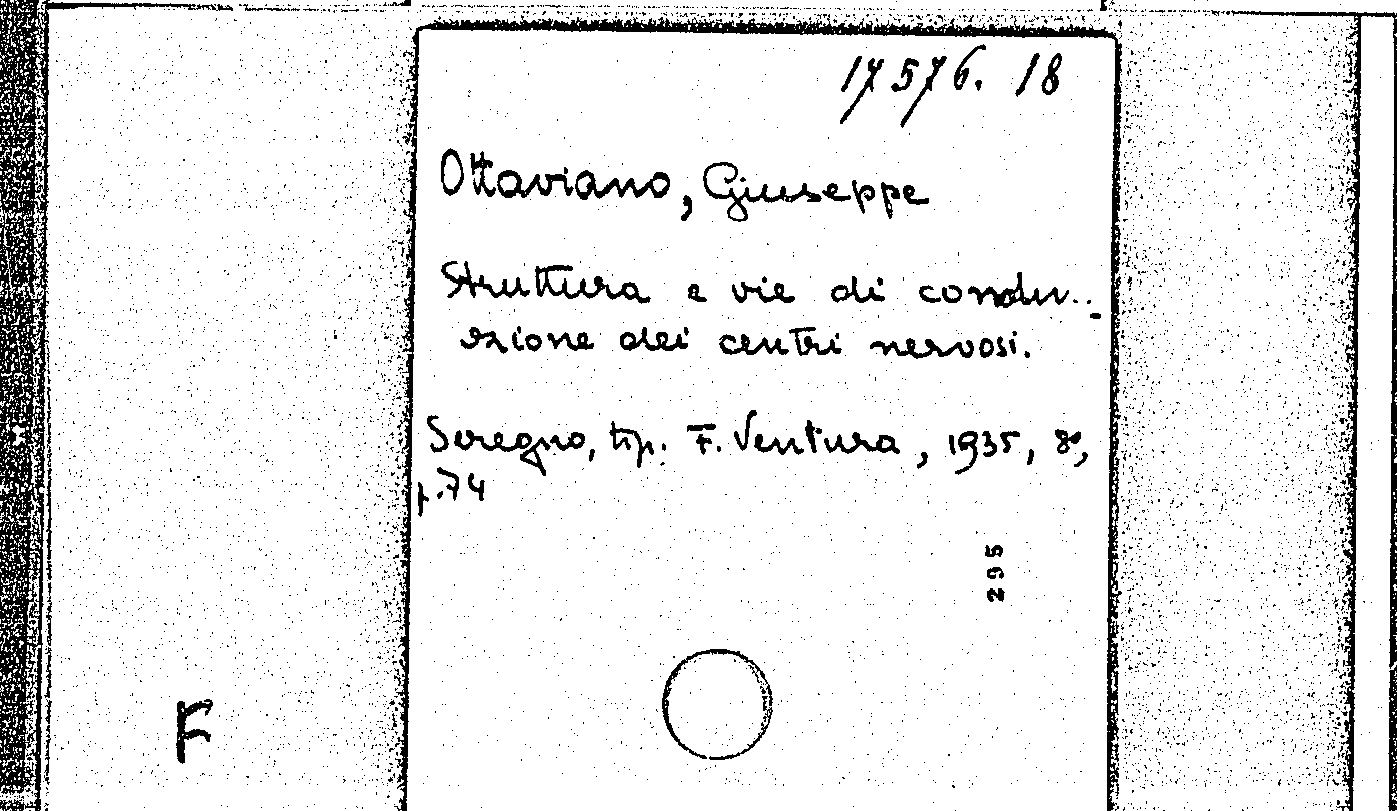 17576. 18
Ottaviano, Giuseppe
Struttura e vie di condu..-
zione dei centri nervosi.
Seregno, tip. F. Ventura, 1935, 8°,
p.74
295
F